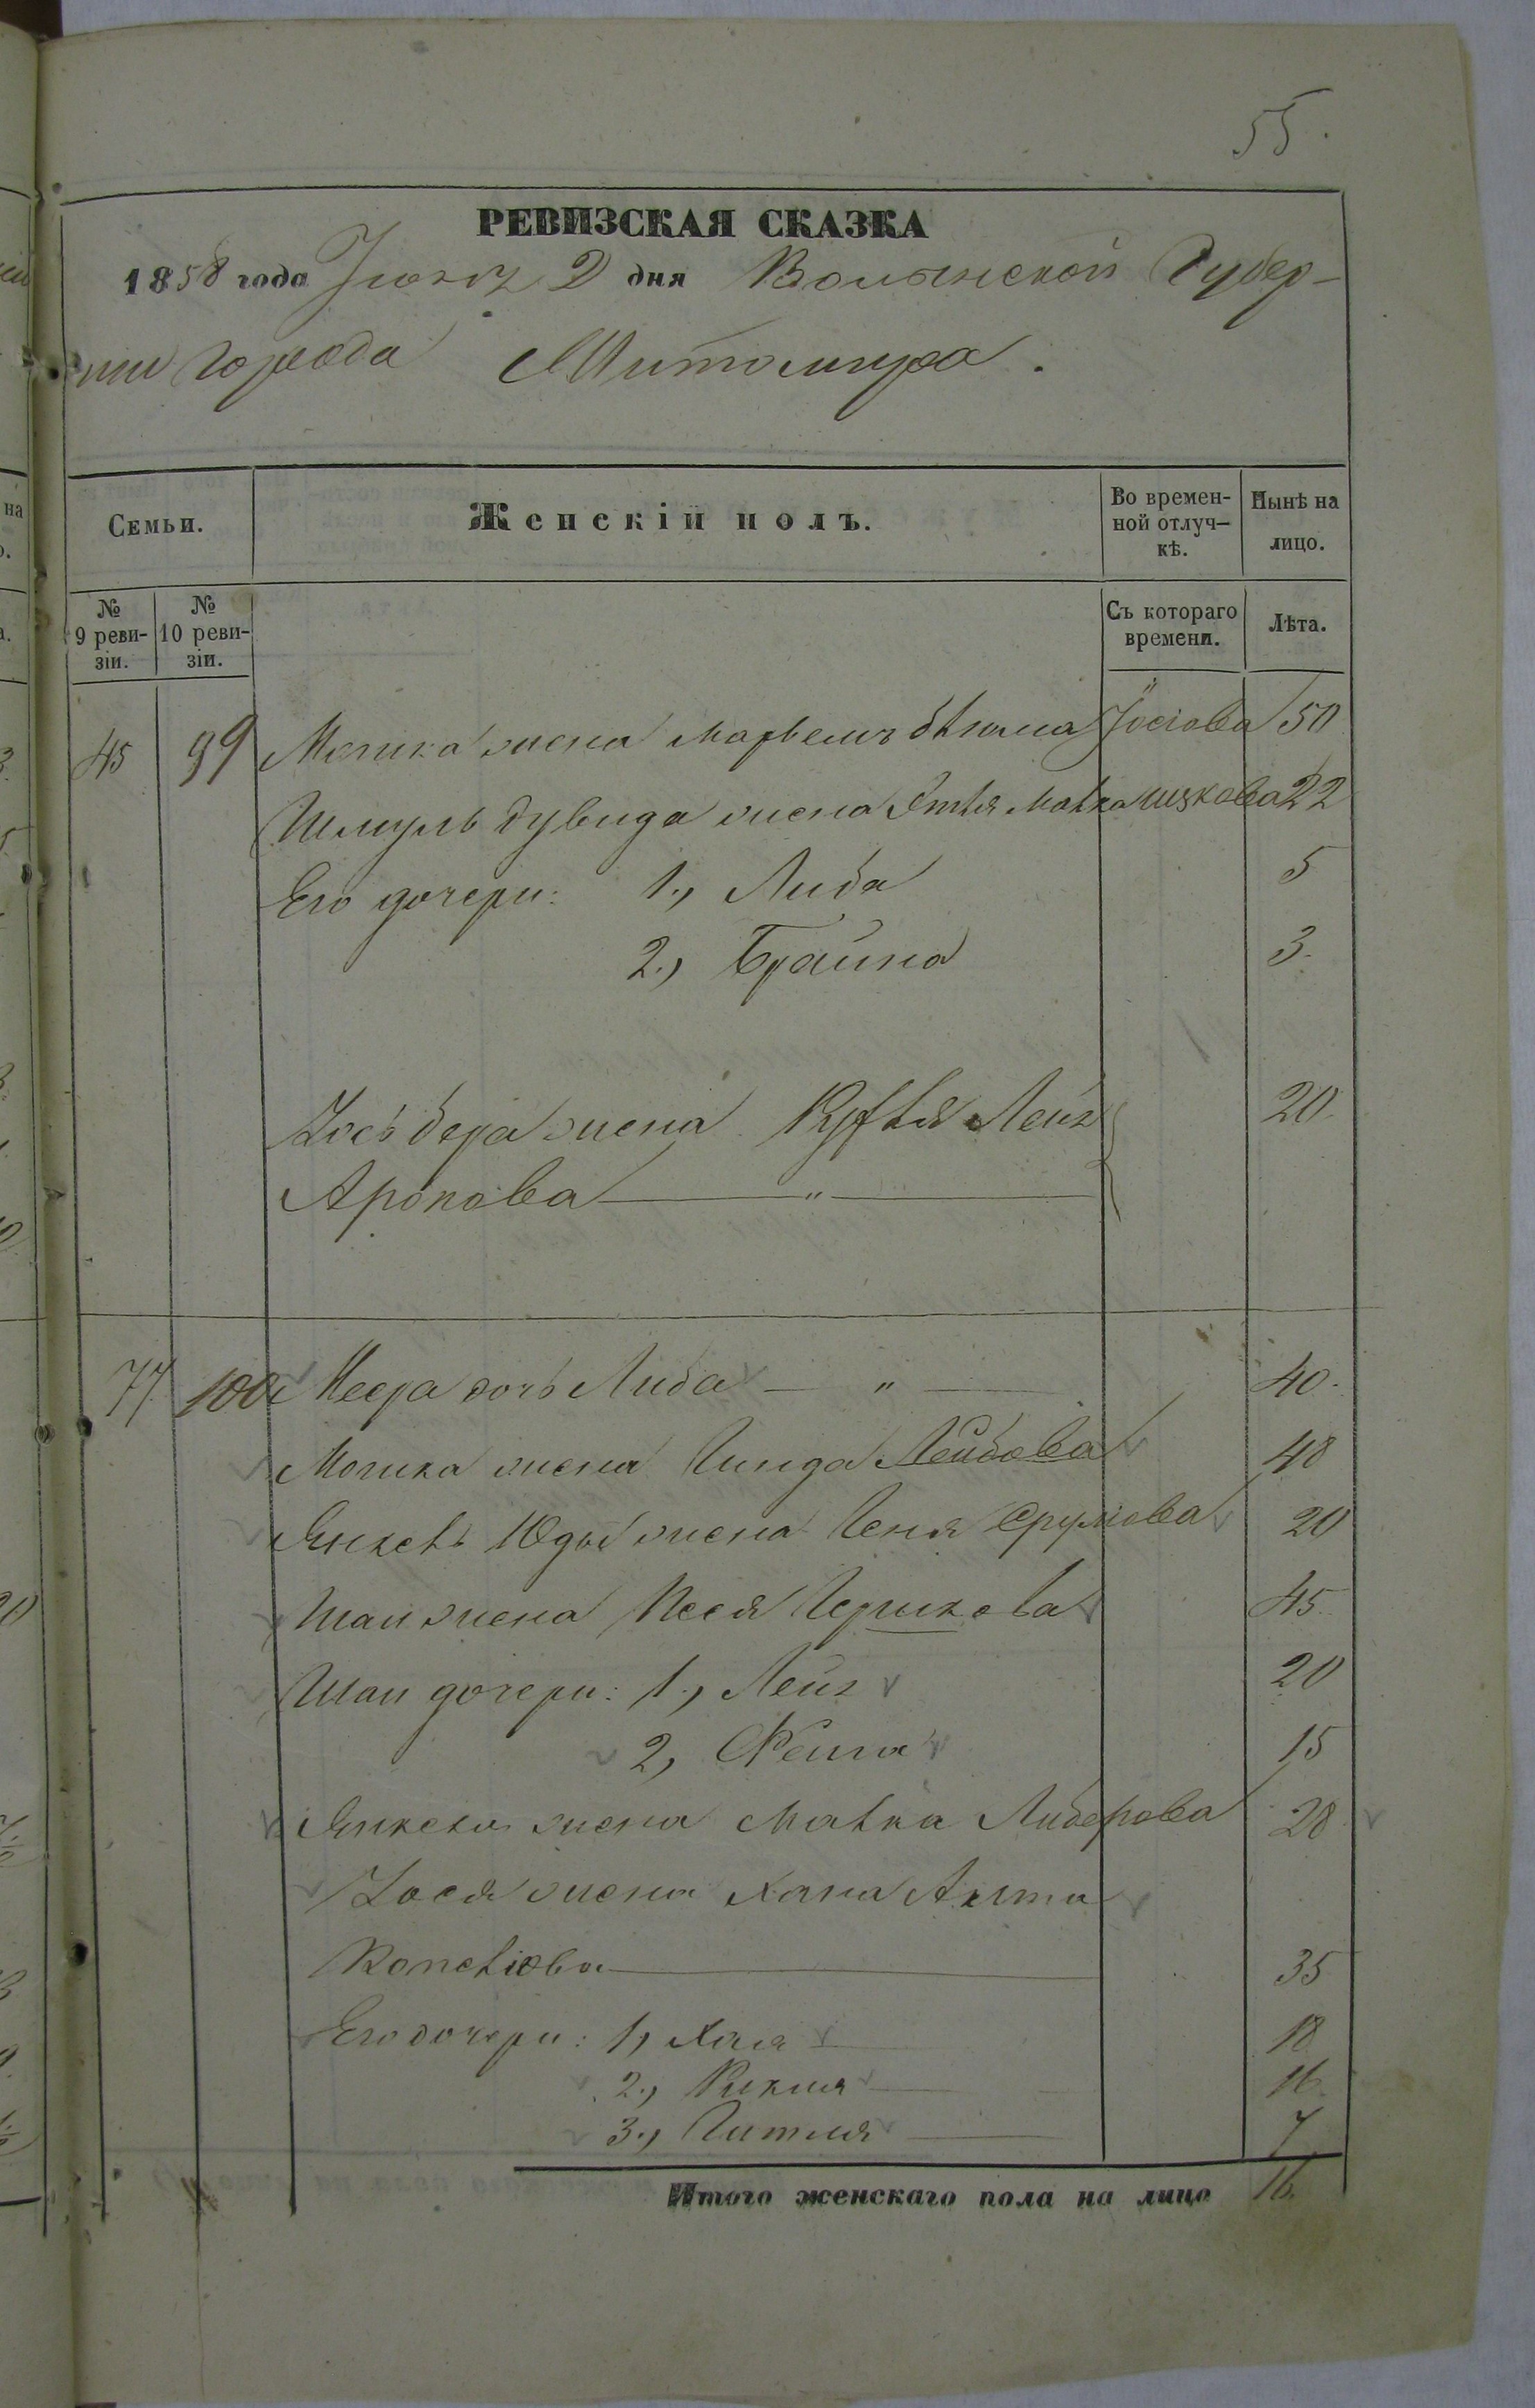 55.
РЕВИЗСКАЯ СКАЗКА
1858 года Іюня 2 дня Волынской Губер-
ніи города Житомира.
Семьи.
Женскій полъ.
Во времен-
ной отлуч-
кѣ.
Нынѣ на
лицо.
№
9 реви-
зіи.
№
10 реви-
зіи.
Съ котораго
времени.
Лѣта.
45 99 Мошка жена Марьемъ бѣйла Іосіова 50
Шмуль Дувида жена Этля Малка Ицкова 22
Его дочери: 1., Либа 5
2., Брайна 3.
Іось бера жена Рухля Лея 20.
Аронова — " —
77 100 Меера дочь Либа — " — 40.
Мошка жена Гинда Лейбова 48
Янкель Юды жена Геня Срулiова 20
Шаи жена Песя Гершкова 45.
Шаи дочери: 1., Лея 20
2, Фейга 15
Янкеля жена Малка Либерова 28
Іося жена Хана
Копелiова 35
Его дочери: 1, Хая 18
2., Рикля 16.
3., Гитля 7
Итого женскаго пола на лицо 16.